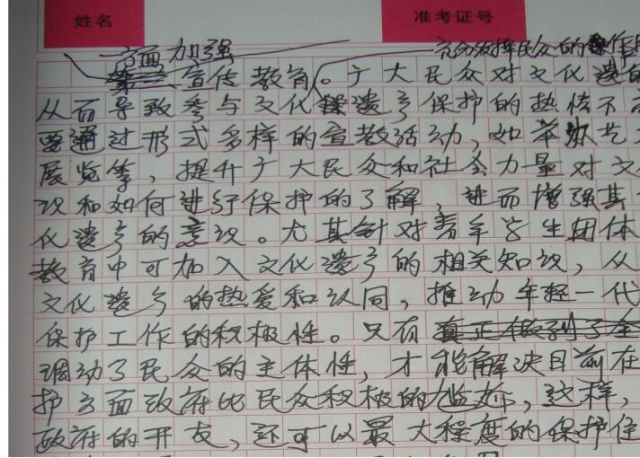 姓名 准考证号
方面加强 充分发挥民众的作
宣传教育。广大民众对文化遗
从而导致参与文化遗产保护的热情不
要通过形式多样的宣教活动，如举办艺
展览等，提升广大民众和社会力量对文
识和如何进行保护的了解，进而增强其
化遗产的意识。尤其针对青年学生团体
教育中可加入文化遗产的相关知识，从
文化遗产的热爱和认同，推动年轻一代
保护工作的积极性。只有真正做到了全
调动了民众的主体性，才能解决目前在
护方面政府比民众积极的尴尬，这样，
政府的开支，还可以最大程度的保护住